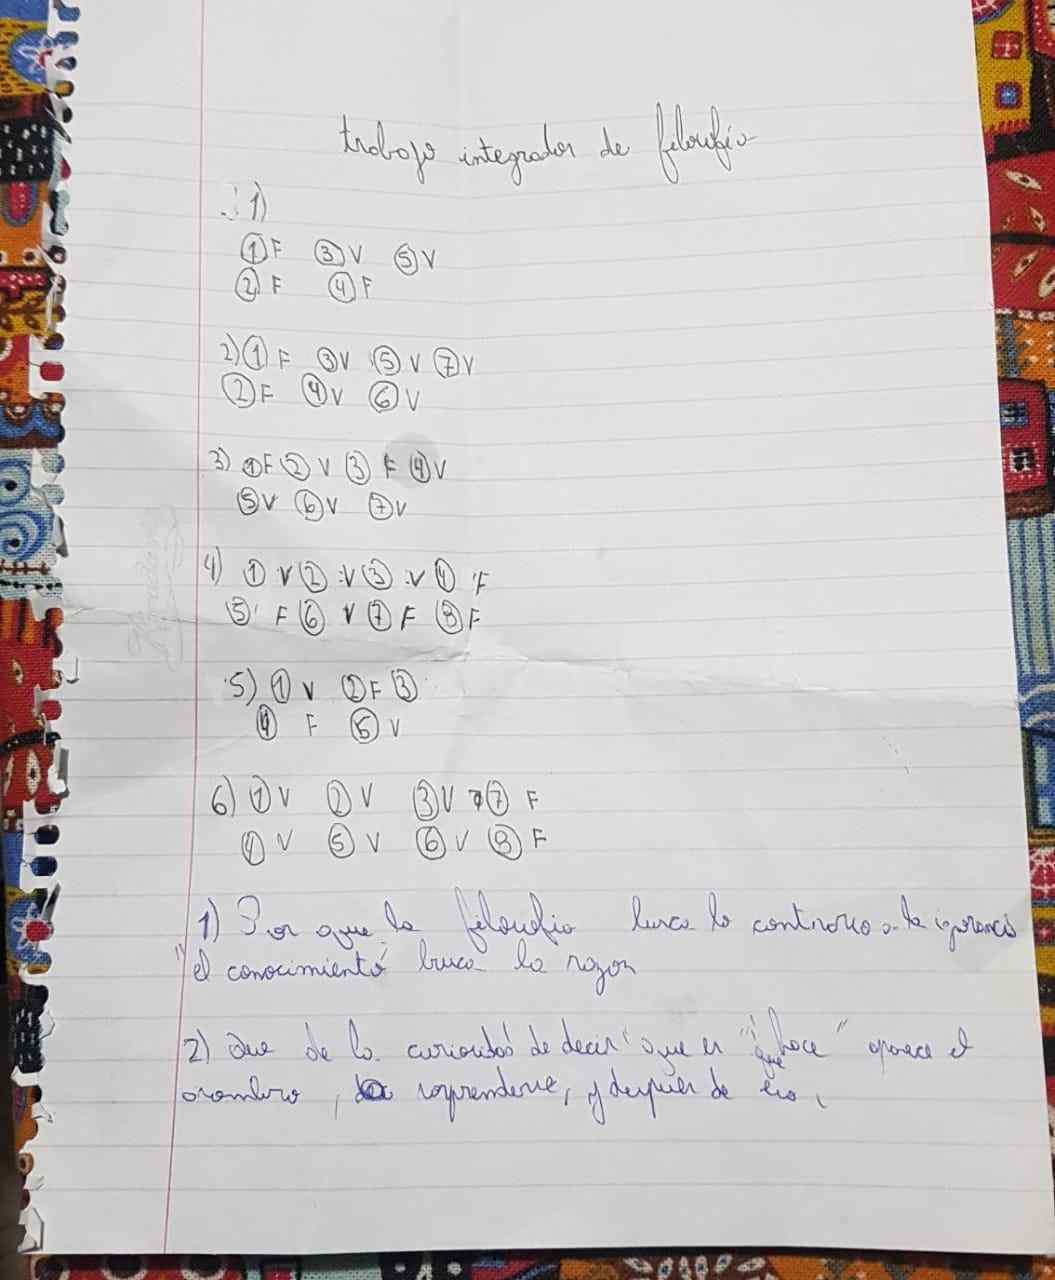 trabajo integrador de filosofía
1)
① F ③ V ⑤ V
② F ④ F
2) ① F ③ V ⑤ V ⑦ V
② F ④ V ⑥ V
3) ① F ② V ③ F ④ V
⑤ V ⑥ V ⑦ V
4) ① V ② V ③ V ④ F
⑤ F ⑥ V ⑦ F ⑧ F
5) ① V ② F ③
④ F ⑤ V
6) ① V ② V ③ V ⑦ F
④ V ⑤ V ⑥ V ⑧ F
1) Por que la filosofia busca lo contrario a la ignorancia
"el conocimiento" busca la razon
2) Que de la curiosidad de decir "que es" "que hace" aparece el
asombro, sorprenderse, y despues de eso,